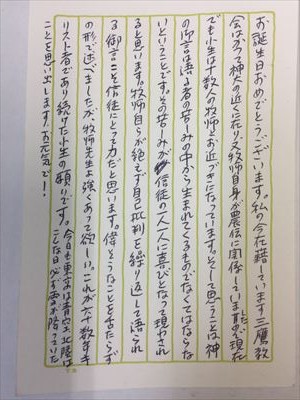 お誕生日おめでとうございます。私の今在籍しています三鷹教
会はかつて神大の近くに在り、又牧師自身が農伝に関係していました事で現在
でも小生は十数人の牧師とお近づきになっています。そして思うことは神
の御言は語る者の苦しみの中から生まれてくるものでなくてはならな
いということです。その苦しみが信徒の一人一人に喜びとなって現わされ
ると思います。牧師自らが絶えず自己批判を繰り返して語られ
る御言こそ信徒にとって力だと思います。偉そうなことを舌たらず
の形で述べましたが、牧師先生よ強くあって欲しい。これが六十数年キ
リスト者であり続けた小生の願いです。今日も東京は青空、北陸は
こんな日必ず雪が降っていた
ことを思い出します。お元気で！